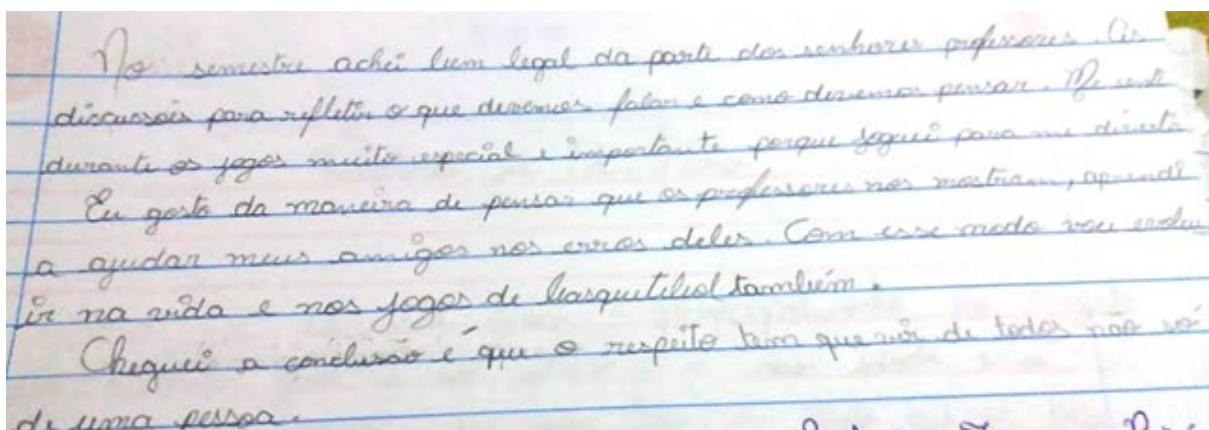 No semestre achei bem legal da parte dos senhores professores. As
discussões para refletir o que devemos falar e como devemos pensar. Me senti
durante os jogos muito especial e importante porque joguei para me divertir
Eu gosto da maneira de pensar que os professores nos mostram, aprendi
a ajudar meus amigos nos erros deles. Com esse modo vou evolu
ir na vida e nos jogos de basquetebol também.
Cheguei a conclusão é que o respeito tem que vir de todos não só
de uma pessoa.